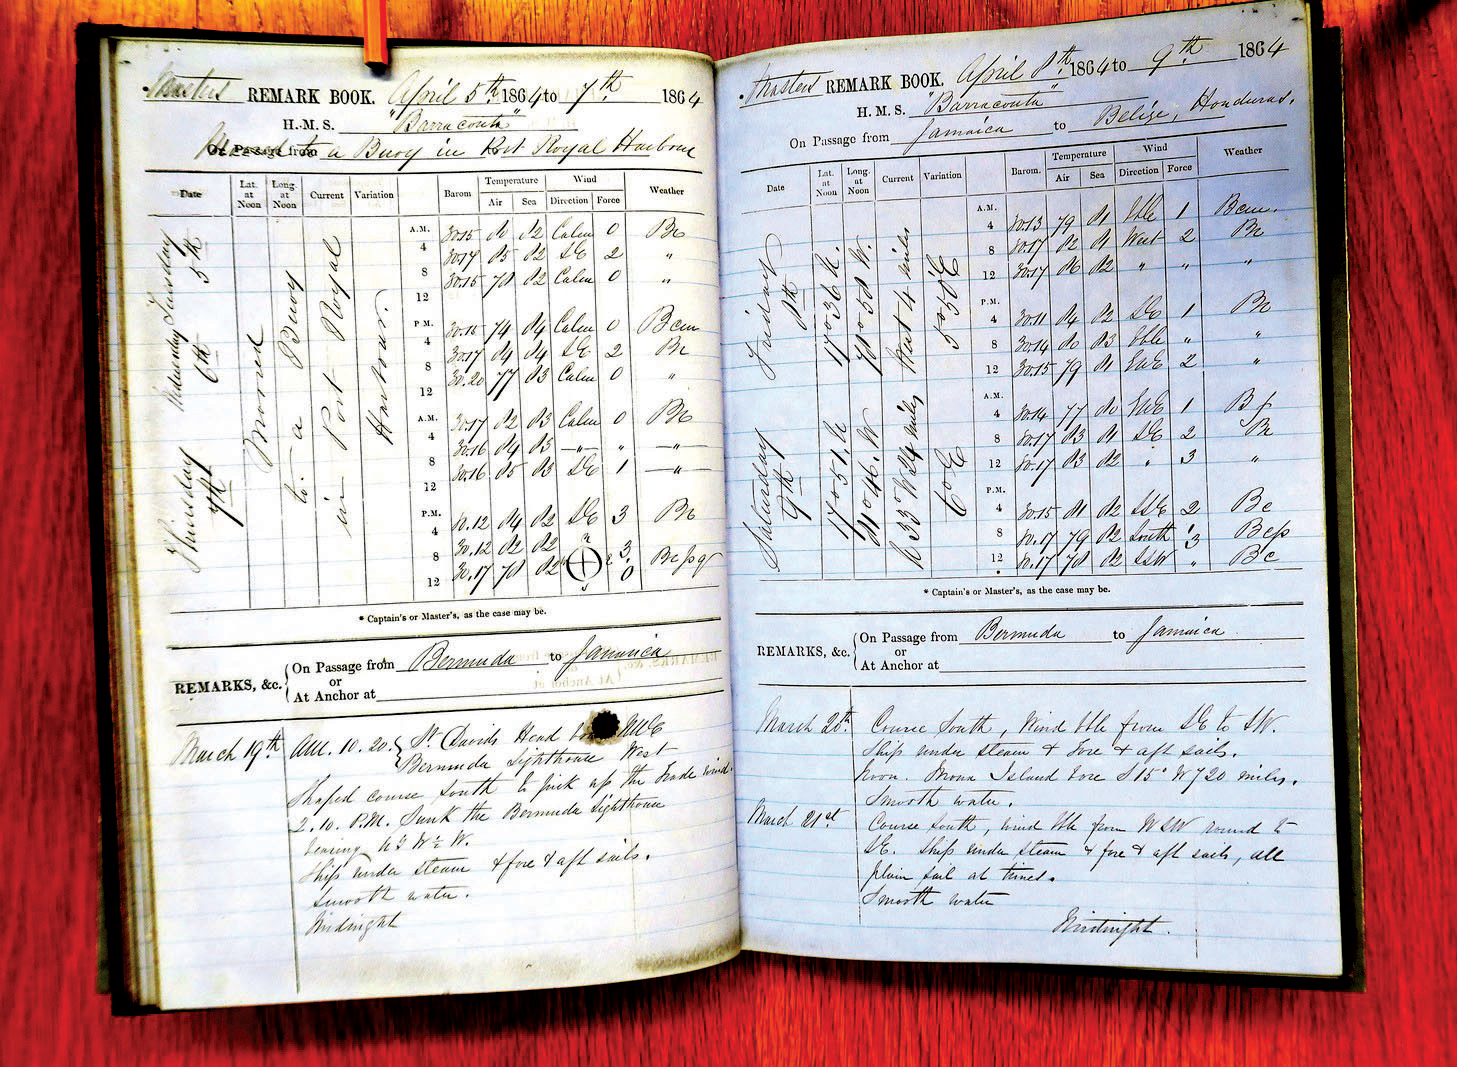 Masters REMARK BOOK. April 5th 1864 to 7th 1864
H.M.S. "Barracouta"
On Passage from
Moored to a Buoy in Port Royal Harbour
Date Lat. at Noon Long. at Noon Current Variation Barom. Temperature Air Sea Wind Direction Force Weather
Tuesday 5th
Wednesday 6th
Thursday 7th
Moored
to a Buoy
in Port Royal
Harbour.
A.M. 30.15 80 82 Calm 0 Bc
4 30.17 85 82 SE 2 "
8 30.15 78 82 Calm 0 "
12
P.M. 30.15 74 84 Calm 0 Bcm
4 30.17 84 84 SE 2 Bc
8 30.20 77 83 Calm 0 "
12
A.M. 30.17 82 83 Calm 0 Bc
4 30.16 84 83 — " — " — " —
8 30.16 85 83 SE 1 — " —
12
P.M. 30.12 84 82 SE 3 Bc
4 30.12 82 82 3
8 30.17 78 82 0 Bcpq
12
* Captain's or Master's, as the case may be.
REMARKS, &c. On Passage from Bermuda to Jamaica
or
At Anchor at
March 19th AM. 10.20. St Davids Head bore NNE
Bermuda Lighthouse West
Shaped course South to pick up the trade wind.
2.10. P.M. Sunk the Bermuda Lighthouse
bearing
Ship under steam & fore & aft sails.
Smooth water.
Midnight
Masters REMARK BOOK. April 8th 1864 to 9th 1864
H.M.S. "Barracouta"
On Passage from Jamaica to Belize, Honduras.
Date Lat. at Noon Long. at Noon Current Variation Barom. Temperature Air Sea Wind Direction Force Weather
Friday 8th
17° 36 N.
78° 58 W.
West 4 miles
5° 50 E
A.M.
4 30.13 79 81 Vble 1 Bcm.
8 30.17 82 81 West 2 Bc
12 30.17 86 82 " " "
P.M.
4 30.11 84 82 SE 1 Bc
8 30.14 80 83 Vble " "
12 30.15 79 81 2 "
Saturday 9th
17° 51 N
81° 46 W
N 33° W 24 miles
6° E
A.M.
4 30.14 77 80 1
8 30.17 83 81 SE 2 Bc
12 30.17 83 82 " 3 "
P.M.
4 30.15 81 82 SSE 2 Bc
8 30.17 79 82 South 3 Bcp
12 30.17 78 82 SSW " Bc
* Captain's or Master's, as the case may be.
REMARKS, &c. On Passage from Bermuda to Jamaica
or
At Anchor at
March 20th Course South, Wind Vble from SE to SW.
Ship under steam & fore & aft sails.
Noon. Mona Island bore S 15° W 720 miles.
Smooth water.
March 21st Course South, wind Vble from WSW round to
SE. Ship under steam & fore & aft sails, all
plain sail at times.
Smooth water
Midnight.